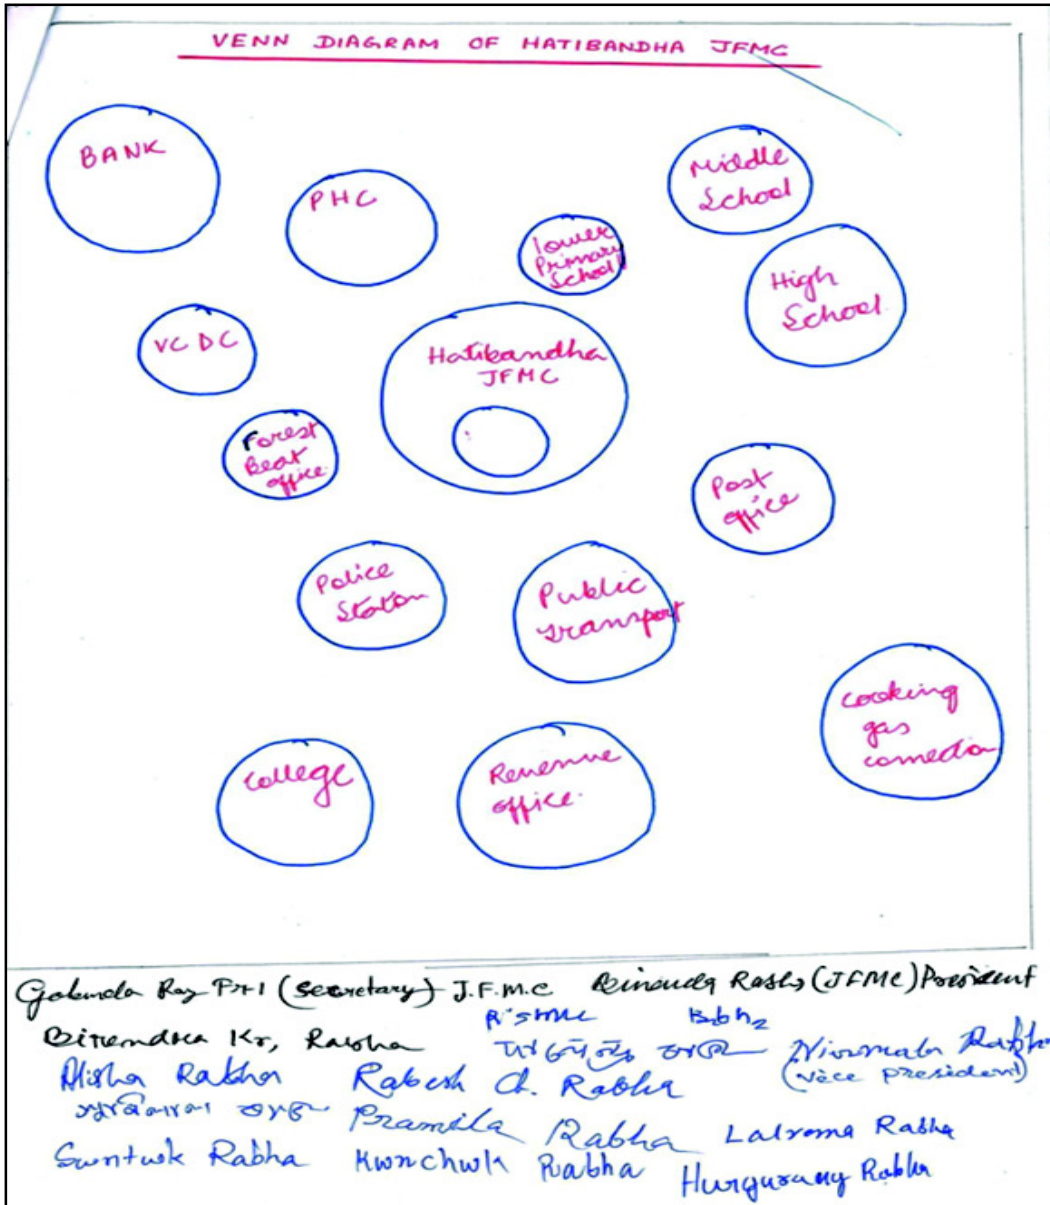 VENN DIAGRAM OF HATIBANDHA JFMC
BANK
PHC
Middle
School
lower
Primary
School
High
School
VCDC
Hatibandha
JFMC
Forest
Beat
office
Post
office
Police
Station
Public
transport
cooking
gas
connection
College
Revenue
office
(Secretary) J.F.M.C (JFMC) President
Birendra Kr, Rabha
Nirmala Rabha
(vice president)
Alisha Rabha Rabesh Ch. Rabha
Pramila Rabha Lalroma Rabha
Suntuk Rabha Kwnchwk Rabha
Rabha